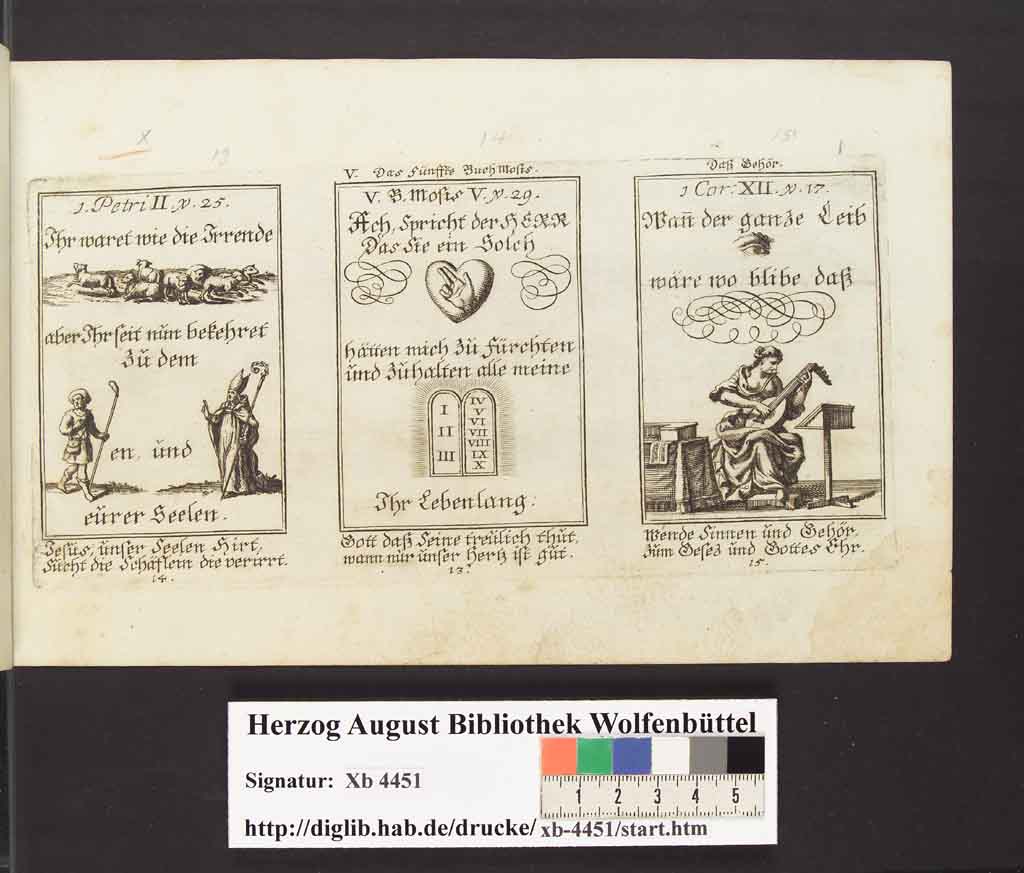 X
13
1. Petri II. v. 25.
Ihr waret wie die Irrende
aber Ihr seit nŭn bekehret
Zŭ dem
en, ŭnd
eŭrer Seelen.
Jesŭs, ŭnser Seelen Hirt,
Sŭcht die Schäflein die verirrt.
14.
14
V. Das Fŭnffte Bŭch Mosis.
V. B. Mosis V. v. 29.
Ach, Spricht der HERR
Das Sie ein Solch
hätten mich Zŭ Fürchten
und Zŭhalten alle meine
I
II
III
IV
V
VI
VII
VIII
IX
X
Ihr Lebenlang:
Gott daß Seine treŭlich thŭt,
wann nŭr ŭnser Hertz ist gŭt.
13.
15
1
Daß Gehör.
1 Cor: XII. v. 17.
Wañ der ganze Leib
wäre wo blibe daß
Wende Sinnen ŭnd Gehör,
Zŭm Gesez ŭnd Gottes Ehr.
15.
Herzog August Bibliothek Wolfenbüttel
Signatur: Xb 4451
1 2 3 4 5
http://diglib.hab.de/drucke/ xb-4451/start.htm